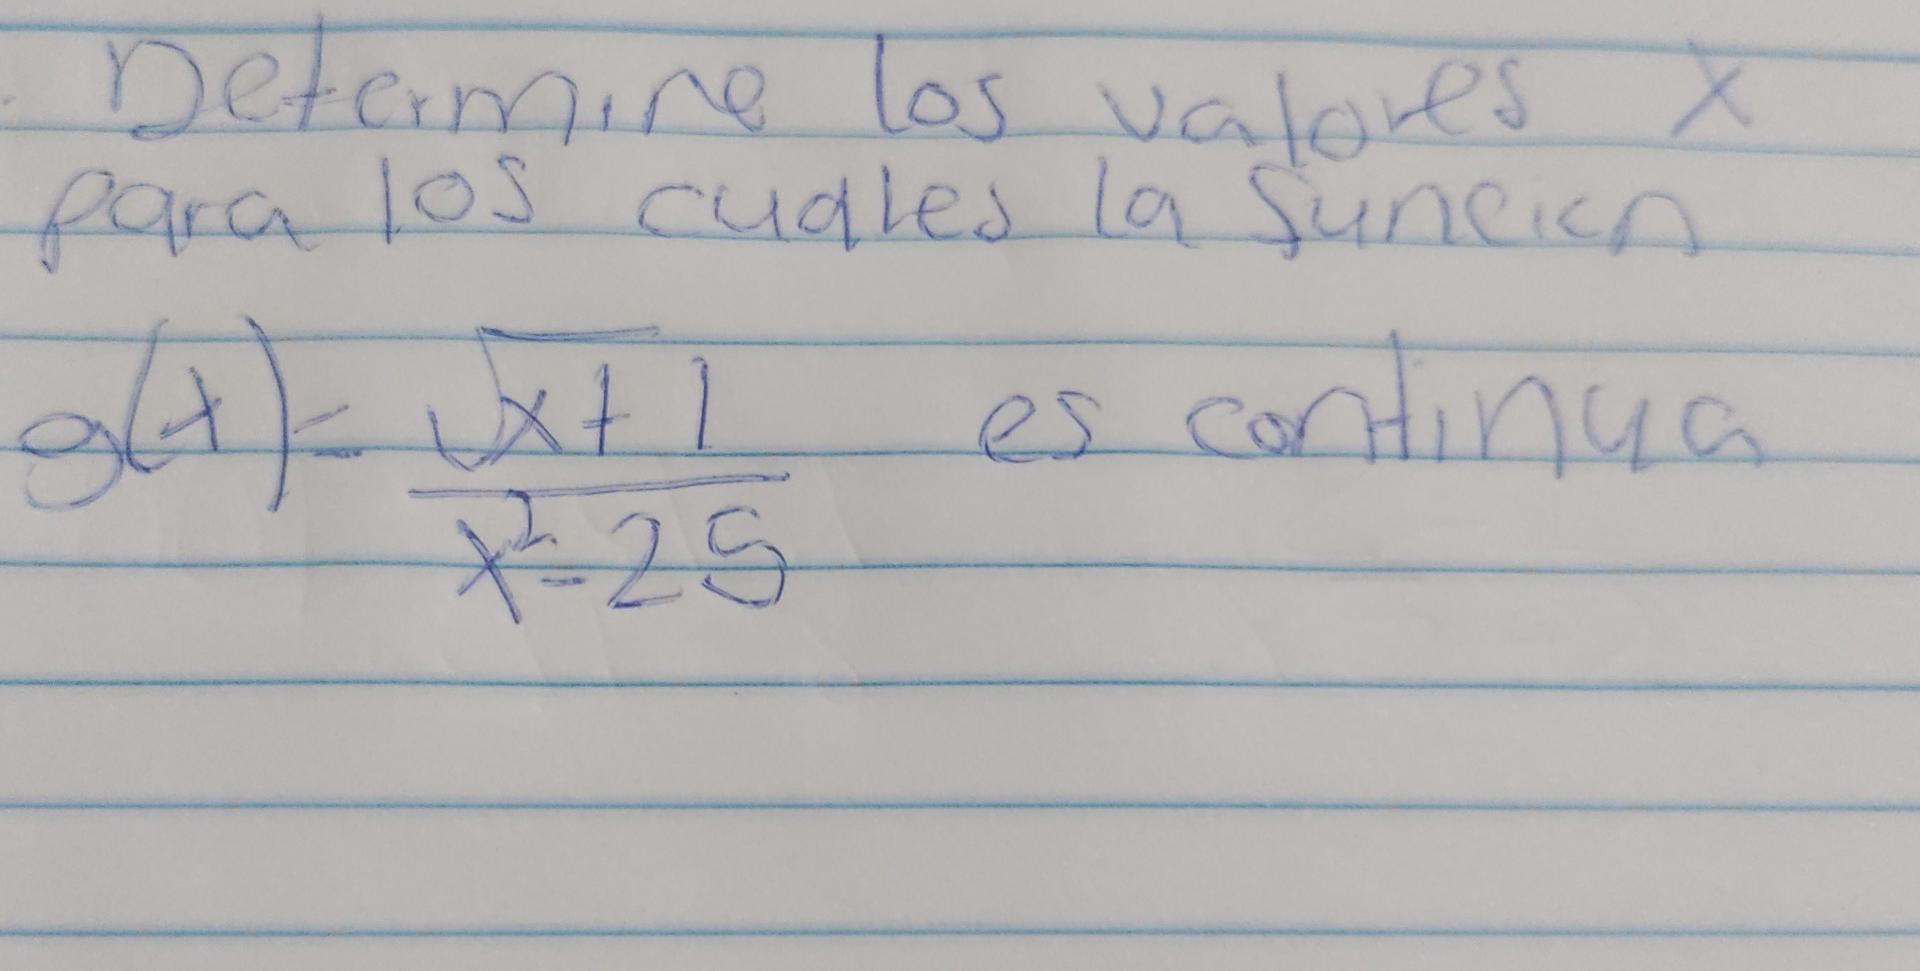 Determine los valores x
para los cuales la funcion
g(x) = √x+1 / x²-25 es continua